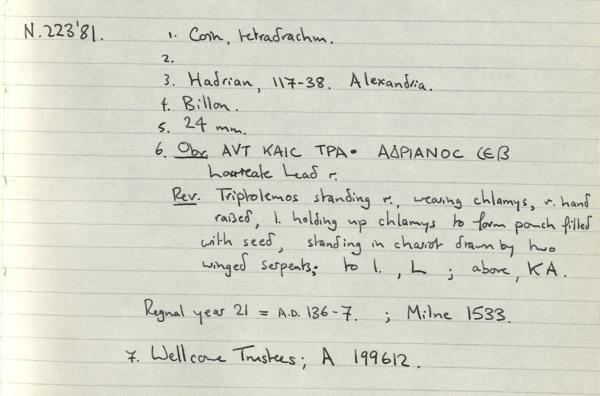 N.223'81. 1. Coin, tetradrachm.
2.
3. Hadrian, 117-38. Alexandria.
4. Billon.
5. 24 mm.
6. Obv. ΑVΤ ΚΑΙC ΤΡΑ• ΑΔΡΙΑΝΟC CЄΒ
Laureate head r.
Rev. Triptolemos standing r., wearing chlamys, r. hand
raised, l. holding up chlamys to form pouch filled
with seed, standing in chariot drawn by two
winged serpents; to l., L ; above, KA.
Regnal year 21 = A.D. 136-7. ; Milne 1533.
7. Wellcome Trustees; A 199612.